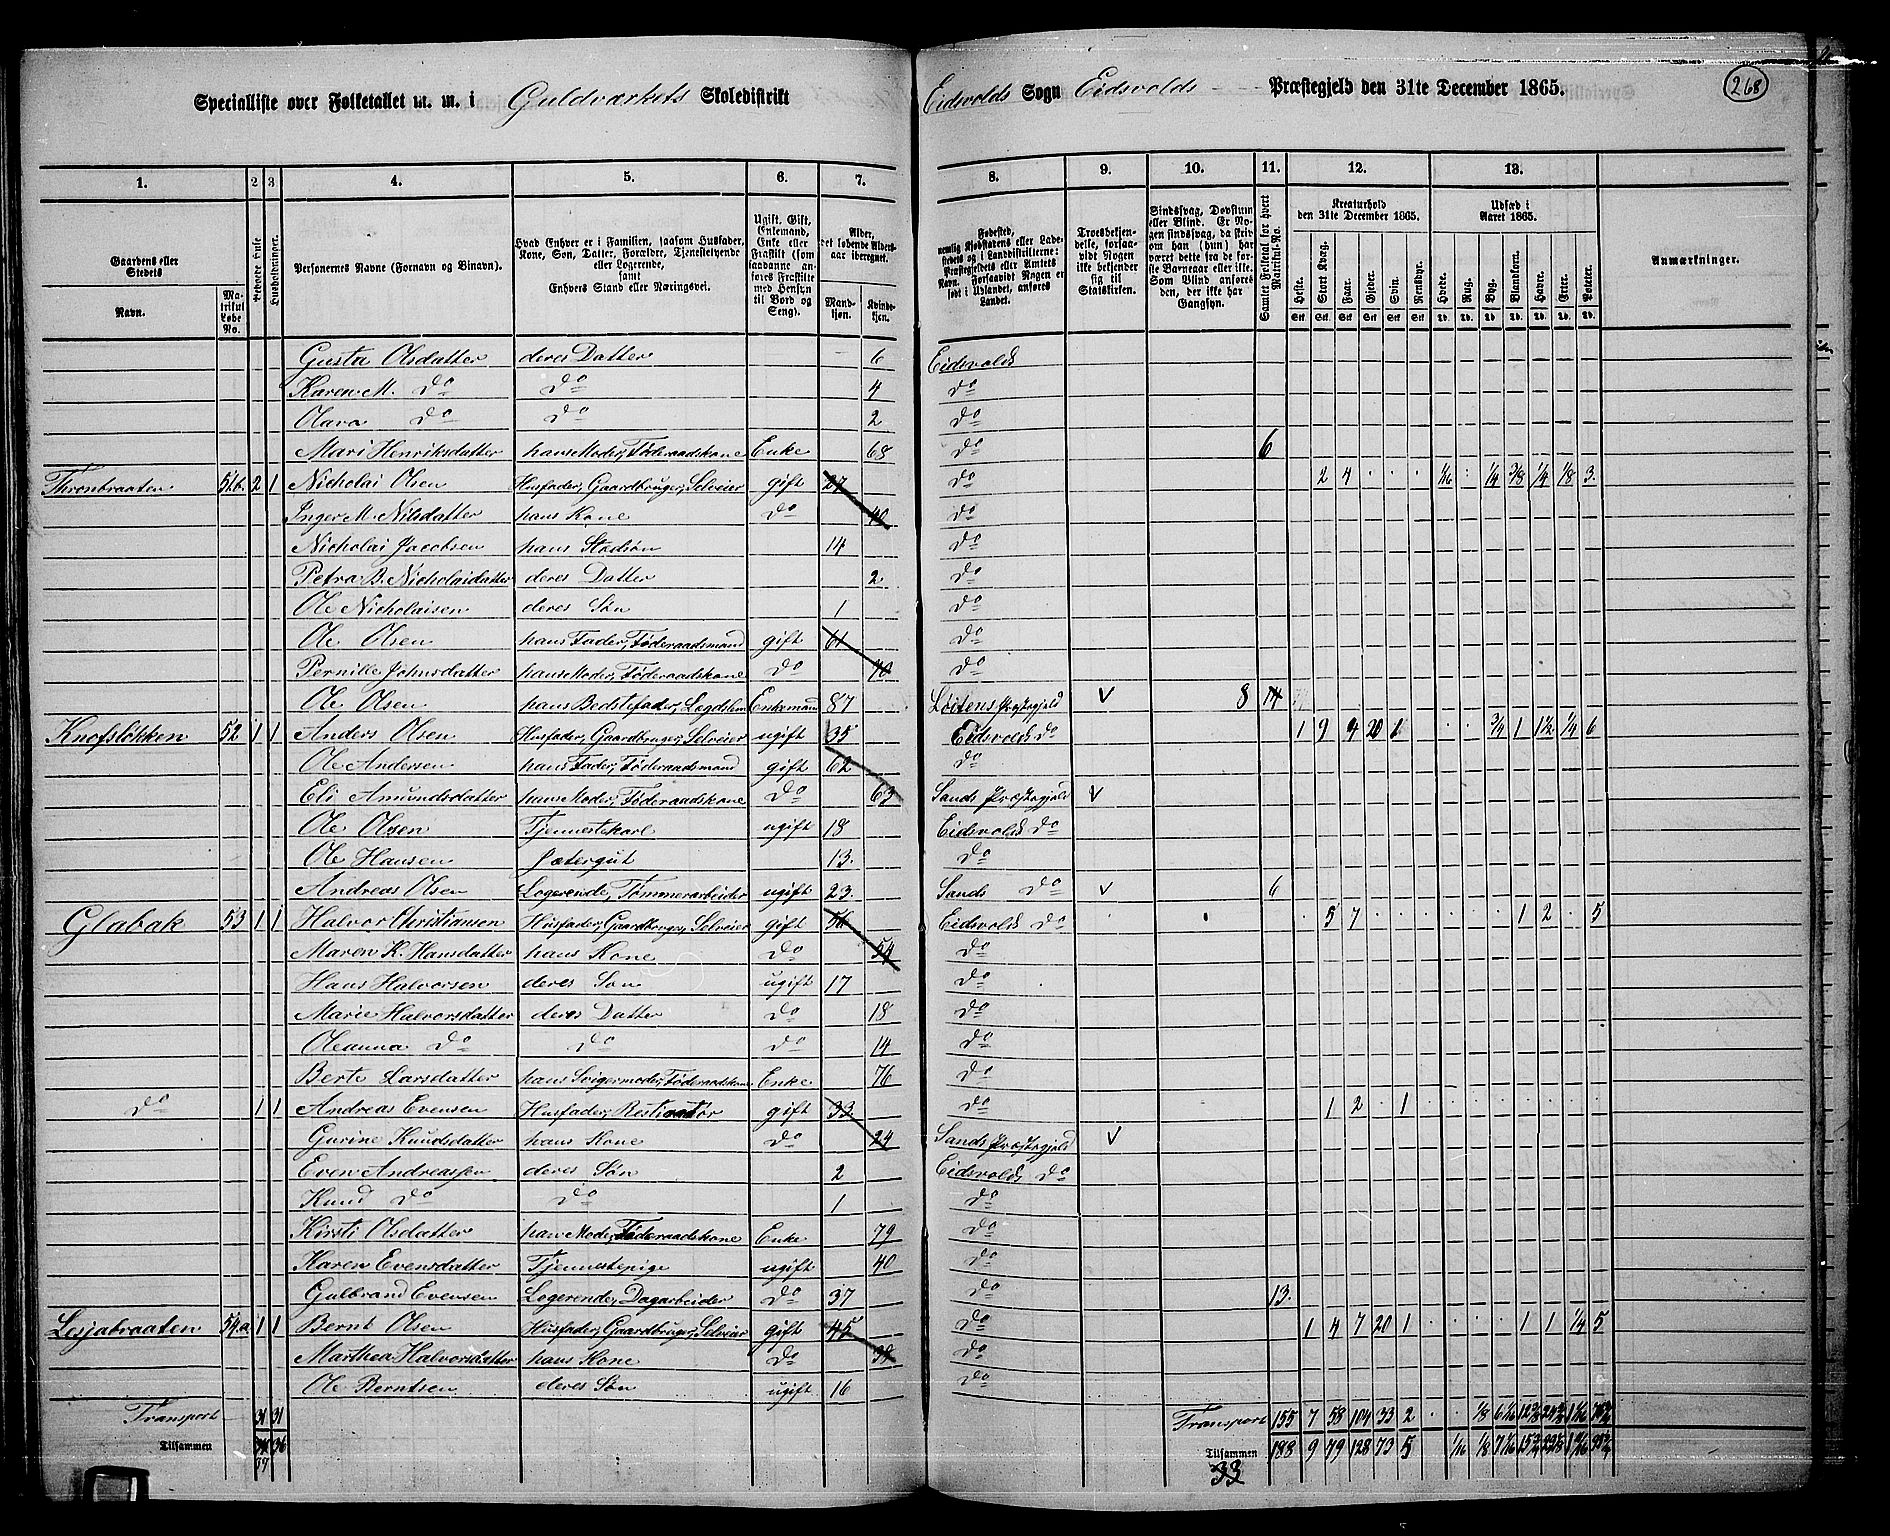 Specialliste over Folketallet m. m. i Guldværkets Skoledistrikt Eidsvolds Sogn Eidsvolds Præstegjeld den 31te December 1865. 268
1. 2 3 4. 5. 6. 7. 8. 9. 10. 11. 12. 13.
Gaardens eller Stedets
Navn.
Matrikul Løbe No.
Beboede Huse
Husholdninger.
Personernes Navne (Fornavn og Binavn).
Hvad Enhver er i Familien, saasom Husfader, Kone, Søn, Datter, Forældre, Tjenestetyende eller Logerende, samt Enhvers Stand eller Næringsvei.
Ugift, Gift, Enkemand, Enke eller Fraskilt (som saadanne anføres Fraskilte med Hensyn til Bord og Seng).
Alder, det løbende Alders-aar iberegnet.
Mandkjøn. Kvindekjøn.
Fødested, nemlig Kjøbstadens eller Ladestedets og i Landdistrikterne: Præstegjeldets eller Amtets Navn. Forsaavidt Nogen er født i Udlandet, anføres Landet.
Troesbekjendelse, forsaavidt Nogen ikke bekjender sig til Statskirken.
Sindssvag, Døvstum eller Blind. Er Nogen sindssvag, da skrives om han (hun) har været dette fra de første Barneaar eller ikke. Som Blind anføres den, der ikke har Gangsyn.
Samlet Folketal for hvert Matrikul-No.
Kreaturhold den 31te December 1865.
Heste. Stort Kvæg. Faar. Gjeder. Svin. Rensdyr.
Udsæd i Aaret 1865.
Hvede. Rug. Byg. Blankorn. Havre. Erter. Poteter.
Anmærkninger.
Gusta Olsdatter deres Datter 6 Eidsvolds
Karen M. Do Do 4 Do
Olava Do Do 2 Do
Mari Henriksdatter hans Moder, Føderaadskone Enke 68 Do 6
Thronbraaten 51b. 2 1 Nicholai Olsen Husfader, Gaardbruger, Selveier gift 27 Do 2 4 1/16 1/4 3/8 1/4 1/8 3.
Inger M. Nilsdatter hans Kone Do 40 Do
Nicholai Jacobsen hans Stedsøn 14 Do
Petra B. Nicholaidatter deres Datter 2 Do
Ole Nicholaisen deres Søn 1 Do
Ole Olsen hans Fader, Føderaadsmand gift 61 Do
Pernille Johnsdatter hans Moder, Føderaadskone Do 70 Do
Ole Olsen hans Bedstefader, Lægdslem Enkemand 87 Løitens Præstegjeld V 8 14
Knofsløkken 52 1 1 Anders Olsen Husfader, Gaardbruger, Selveier ugift 35 Eidsvolds Do 1 9 9 20 1 3/4 1 1 1/2 1/4 6
Ole Andersen hans Fader, Føderaadsmand gift 62 Do
Eli Amundsdatter hans Moder, Føderaadskone Do 63 Sands Præstegjeld V
Ole Olsen Tjenestekarl ugift 18 Eidsvolds Do
Ole Hansen Jætergut 13. Do
Andreas Olsen Logerende, Tømmerarbeider ugift 23. Sands Do V 6
Glabak 53 1 1 Halvor Christiansen Husfader, Gaardbruger, Selveier gift 56 Eidsvolds Do 5 7 1 2 5
Maren K. Hansdatter hans Kone Do 54 Do
Hans Halvorsen deres Søn ugift 17 Do
Marie Halvorsdatter deres Datter Do 18 Do
Oleanna Do Do Do 14 Do
Berte Larsdatter hans Svigermoder, Føderaadskone Enke 76 Do
Do 1 1 Andreas Evensen Husfader, gift 33 Do 1 2 1
Gurine Knudsdatter hans Kone Do 24 Sands Præstegjeld V
Even Andreassen deres Søn 2 Eidsvolds Do
Knud Do Do 1 Do
Kirsti Olsdatter hans Moder, Føderaadskone Enke 79 Do
Karen Evensdatter Tjenestepige ugift 40 Do
Gulbrand Evensen Logerende, Dagarbeider Do 37 Do 13.
Lesjabraaten 54a 1 1 Bernt Olsen Husfader, Gaardbruger, Selveier gift 45 Do 1 4 7 20 1 1 1 1/4 5
Marthea Halvorsdatter hans Kone Do 39 Do
Ole Berntsen deres Søn ugift 16 Do
Transport 31 31 Transport 155 7 58 104 33 2
Tilsammen 36 Tilsammen 188 9 79 128 73 5
37 33